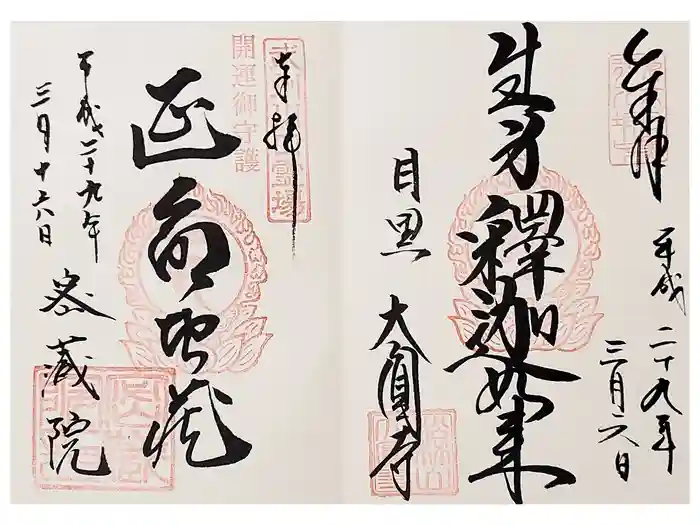 奉拝
平成二十九年
三月六日
生身釋迦如来
目黒
大圓寺
奉拝
開運御守護
延命地蔵
平成二十九年
三月十六日
密蔵院